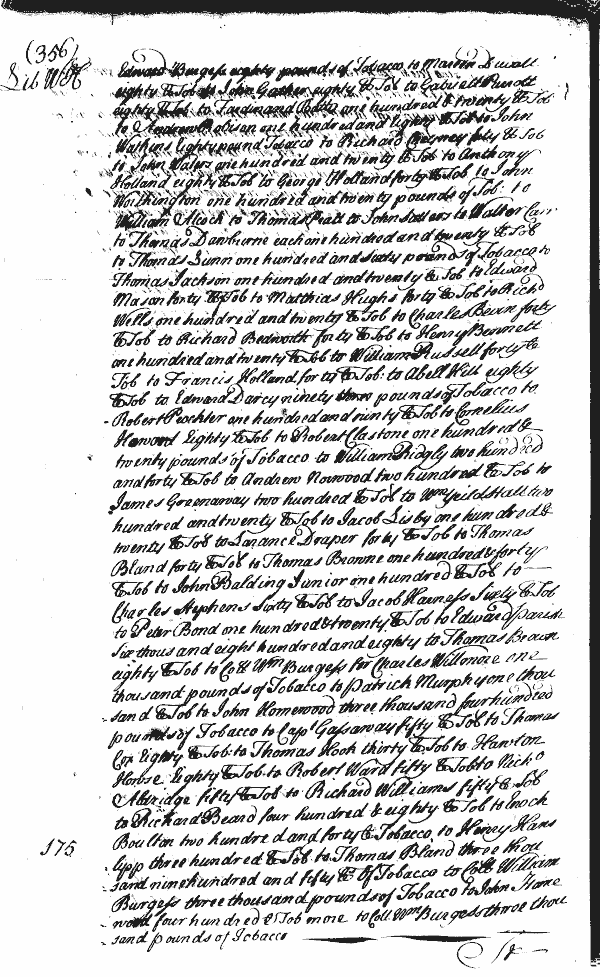 (356)
Lib WH
Edward Burgess eighty pounds of Tobacco to Mareen Duvall
eighty ℔ Tob to John Gather eighty ℔ Tob to Gabriell Parrott
eighty ℔ Tob to Ferdinand one hundred & twenty ℔ Tob
to Andrew Robison one hundred and Eighty ℔ Tob to John
Watkins Eighty pound Tobacco to Richard Cheyney fifty ℔ Tob
to John Waters one hundred and twenty ℔ Tob to Anthony
Holland eighty ℔ Tob to George Holland forty ℔ Tob to John
Worthington one hundred and twenty pounds of Tob: to
William Alcock to Thomas Pratt to John Sellers to Walter Carr
to Thomas Dawburne each one hundred and twenty ℔ Tob
to Thomas Lunn one hundred and sixty pounds of Tobacco to
Thomas Jackson one hundred and twenty ℔ Tob to Edward
Mason forty ℔ Tob to Matthias Hughs forty ℔ Tob to Richd
Wells one hundred and twenty ℔ Tob to Charles Beven forty
℔ Tob to Richard Bedworth forty ℔ Tob to Henry Bennett
one hundred and twenty ℔ Tob to William Russell forty ℔
Tob to Francis Holland forty ℔ Tob: to Abell Hill eighty
℔ Tob to Edward Darcy ninety three pounds of Tobacco to
Robert Prockter one hundred and ninty ℔ Tob to Cornelius
Howard Eighty ℔ Tob to Robert Clastone one hundred &
twenty pounds of Tobacco to William Ridgly two hundred
and forty ℔ Tob to Andrew Norwood two hundred ℔ Tob to
James Greenaway two hundred ℔ Tob to Wm Yeildhall two
hundred and twenty ℔ Tob to Jacob Lisby one hundred &
twenty ℔ Tob to Larance Draper forty ℔ Tob to Thomas
Bland forty ℔ Tob to Thomas Browne one hundred & forty
℔ Tob to John Balding Junior one hundred ℔ Tob to
Charles Stephens Sixty ℔ Tob to Jacob Harness Sixty ℔ Tob
to Peter Bond one hundred & twenty ℔ Tob to Edward Parish
Six thous and eight hundred and eighty to Thomas Brown
eighty ℔ Tob to Coll Wm Burgess for Charles Willmore one
thousand pounds of Tobacco to Patrick Murphy one thou
sand ℔ Tob to John Homewood three thousand four hundred
pounds of Tobacco to Capt Gassaway fifty ℔ Tob to Thomas
Cox Eighty ℔ Tob: to Thomas Hooh thirty ℔ Tob to Hawton
House Eighty ℔ Tob: to Robert Ward fifty ℔ Tob to Nicho
Aldridge fifty ℔ Tob to Richard Williams fifty ℔ Tob
to Richard Beard four hundred & eighty ℔ Tob to Enoch
Boulton two hundred and forty ℔ Tobacco, to Henry Hans
175
lypp three hundred ℔ Tob. to Thomas Bland three thou
sand nine hundred and fifty ℔ of Tobacco to Coll William
Burgess three thousand pounds of Tobacco to John Home
wood four hundred ℔ Tob more to Coll Wm Burgess three thou
sand pounds of Tobacco